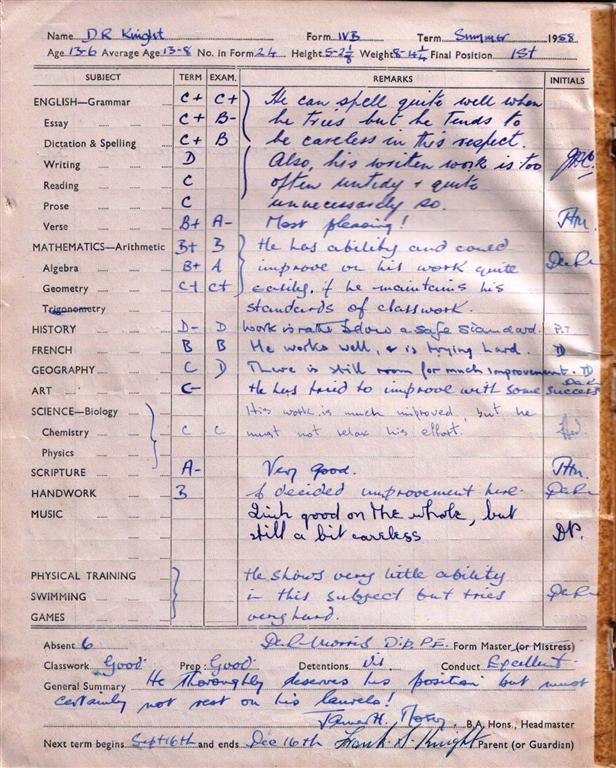 Name D R Knight Form IVB Term Summer 1958
Age 13-6 Average Age 13-8 No. in Form 24 Height 5-2⅛ Weight 8-4¼ Final Position 1st
SUBJECT TERM EXAM. REMARKS INITIALS
ENGLISH—Grammar C+ C+ He can spell quite well when
Essay C+ B- he tries but he tends to
Dictation & Spelling C+ B be careless in this respect.
Writing D Also, his written work is too
Reading C often untidy & quite
Prose C unnecessarily so.
Verse B+ A- Most pleasing!
MATHEMATICS—Arithmetic B+ B He has ability and could
Algebra B+ A improve on his work quite
Geometry C+ C+ easily, if he maintains his
Trigonometry standards of classwork.
HISTORY D- D Work is rather below a safe standard. P.T
FRENCH B B He works well, & is trying hard. D
GEOGRAPHY C D There is still room for much improvement. D
ART C- He has tried to improve with some success
SCIENCE—Biology His work is much improved, but he
Chemistry C C must not relax his effort.
Physics
SCRIPTURE A- Very good.
HANDWORK B A decided improvement here.
MUSIC Quite good on the whole, but
still a bit careless DP.
PHYSICAL TRAINING He shows very little ability
SWIMMING in this subject but tries
GAMES very hard.
Absent 6 Morris Dip. P.E. Form Master (or Mistress)
Classwork Good Prep: Good Detentions Nil Conduct Excellent
General Summary He thoroughly deserves his position but must
certainly not rest on his laurels!
B.A. Hons., Headmaster
Next term begins Sept 16th and ends Dec 16th Frank D. Knight Parent (or Guardian)